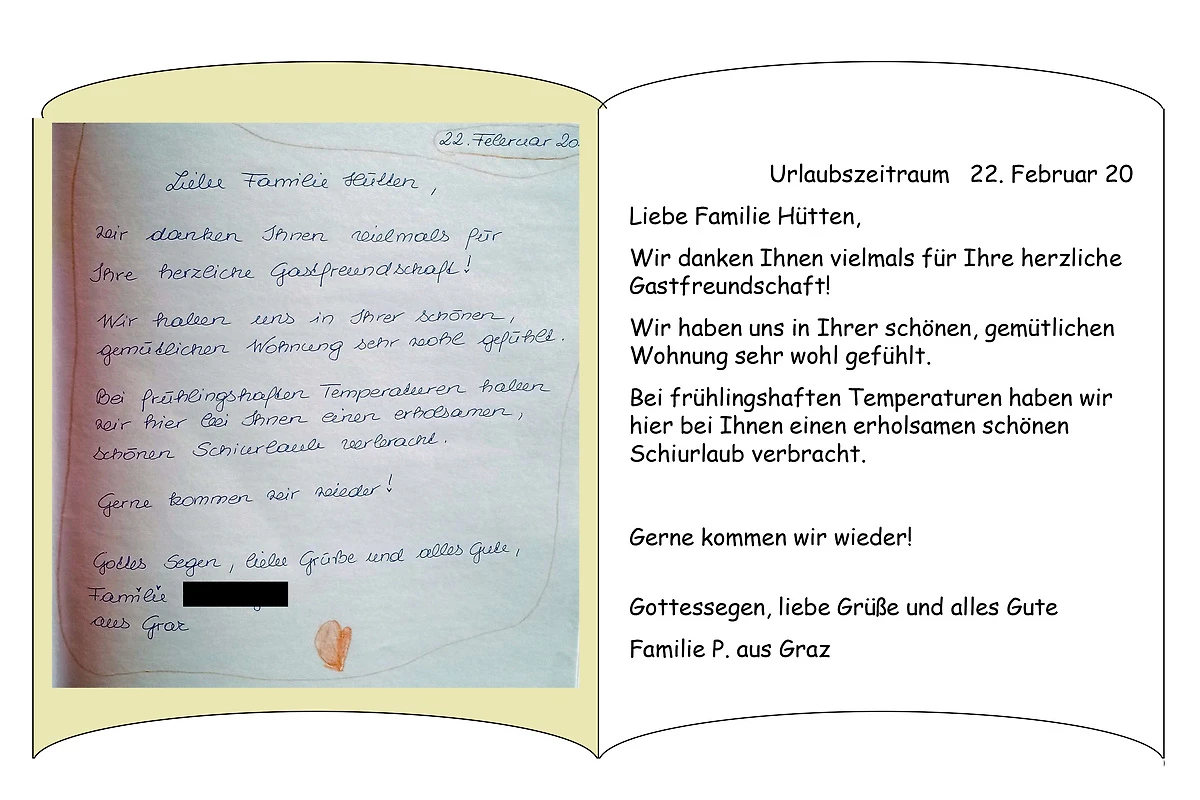 22. Februar 20
Liebe Familie Hütten,
wir danken Ihnen vielmals für
Ihre herzliche Gastfreundschaft!
Wir haben uns in Ihrer schönen,
gemütlichen Wohnung sehr wohl gefühlt.
Bei frühlingshaften Temperaturen haben
wir hier bei Ihnen einen erholsamen,
schönen Schiurlaub verbracht.
Gerne kommen wir wieder!
Gottes Segen, liebe Grüße und alles Gute,
Familie
aus Graz
Urlaubszeitraum 22. Februar 20
Liebe Familie Hütten,
Wir danken Ihnen vielmals für Ihre herzliche
Gastfreundschaft!
Wir haben uns in Ihrer schönen, gemütlichen
Wohnung sehr wohl gefühlt.
Bei frühlingshaften Temperaturen haben wir
hier bei Ihnen einen erholsamen schönen
Schiurlaub verbracht.
Gerne kommen wir wieder!
Gottessegen, liebe Grüße und alles Gute
Familie P. aus Graz